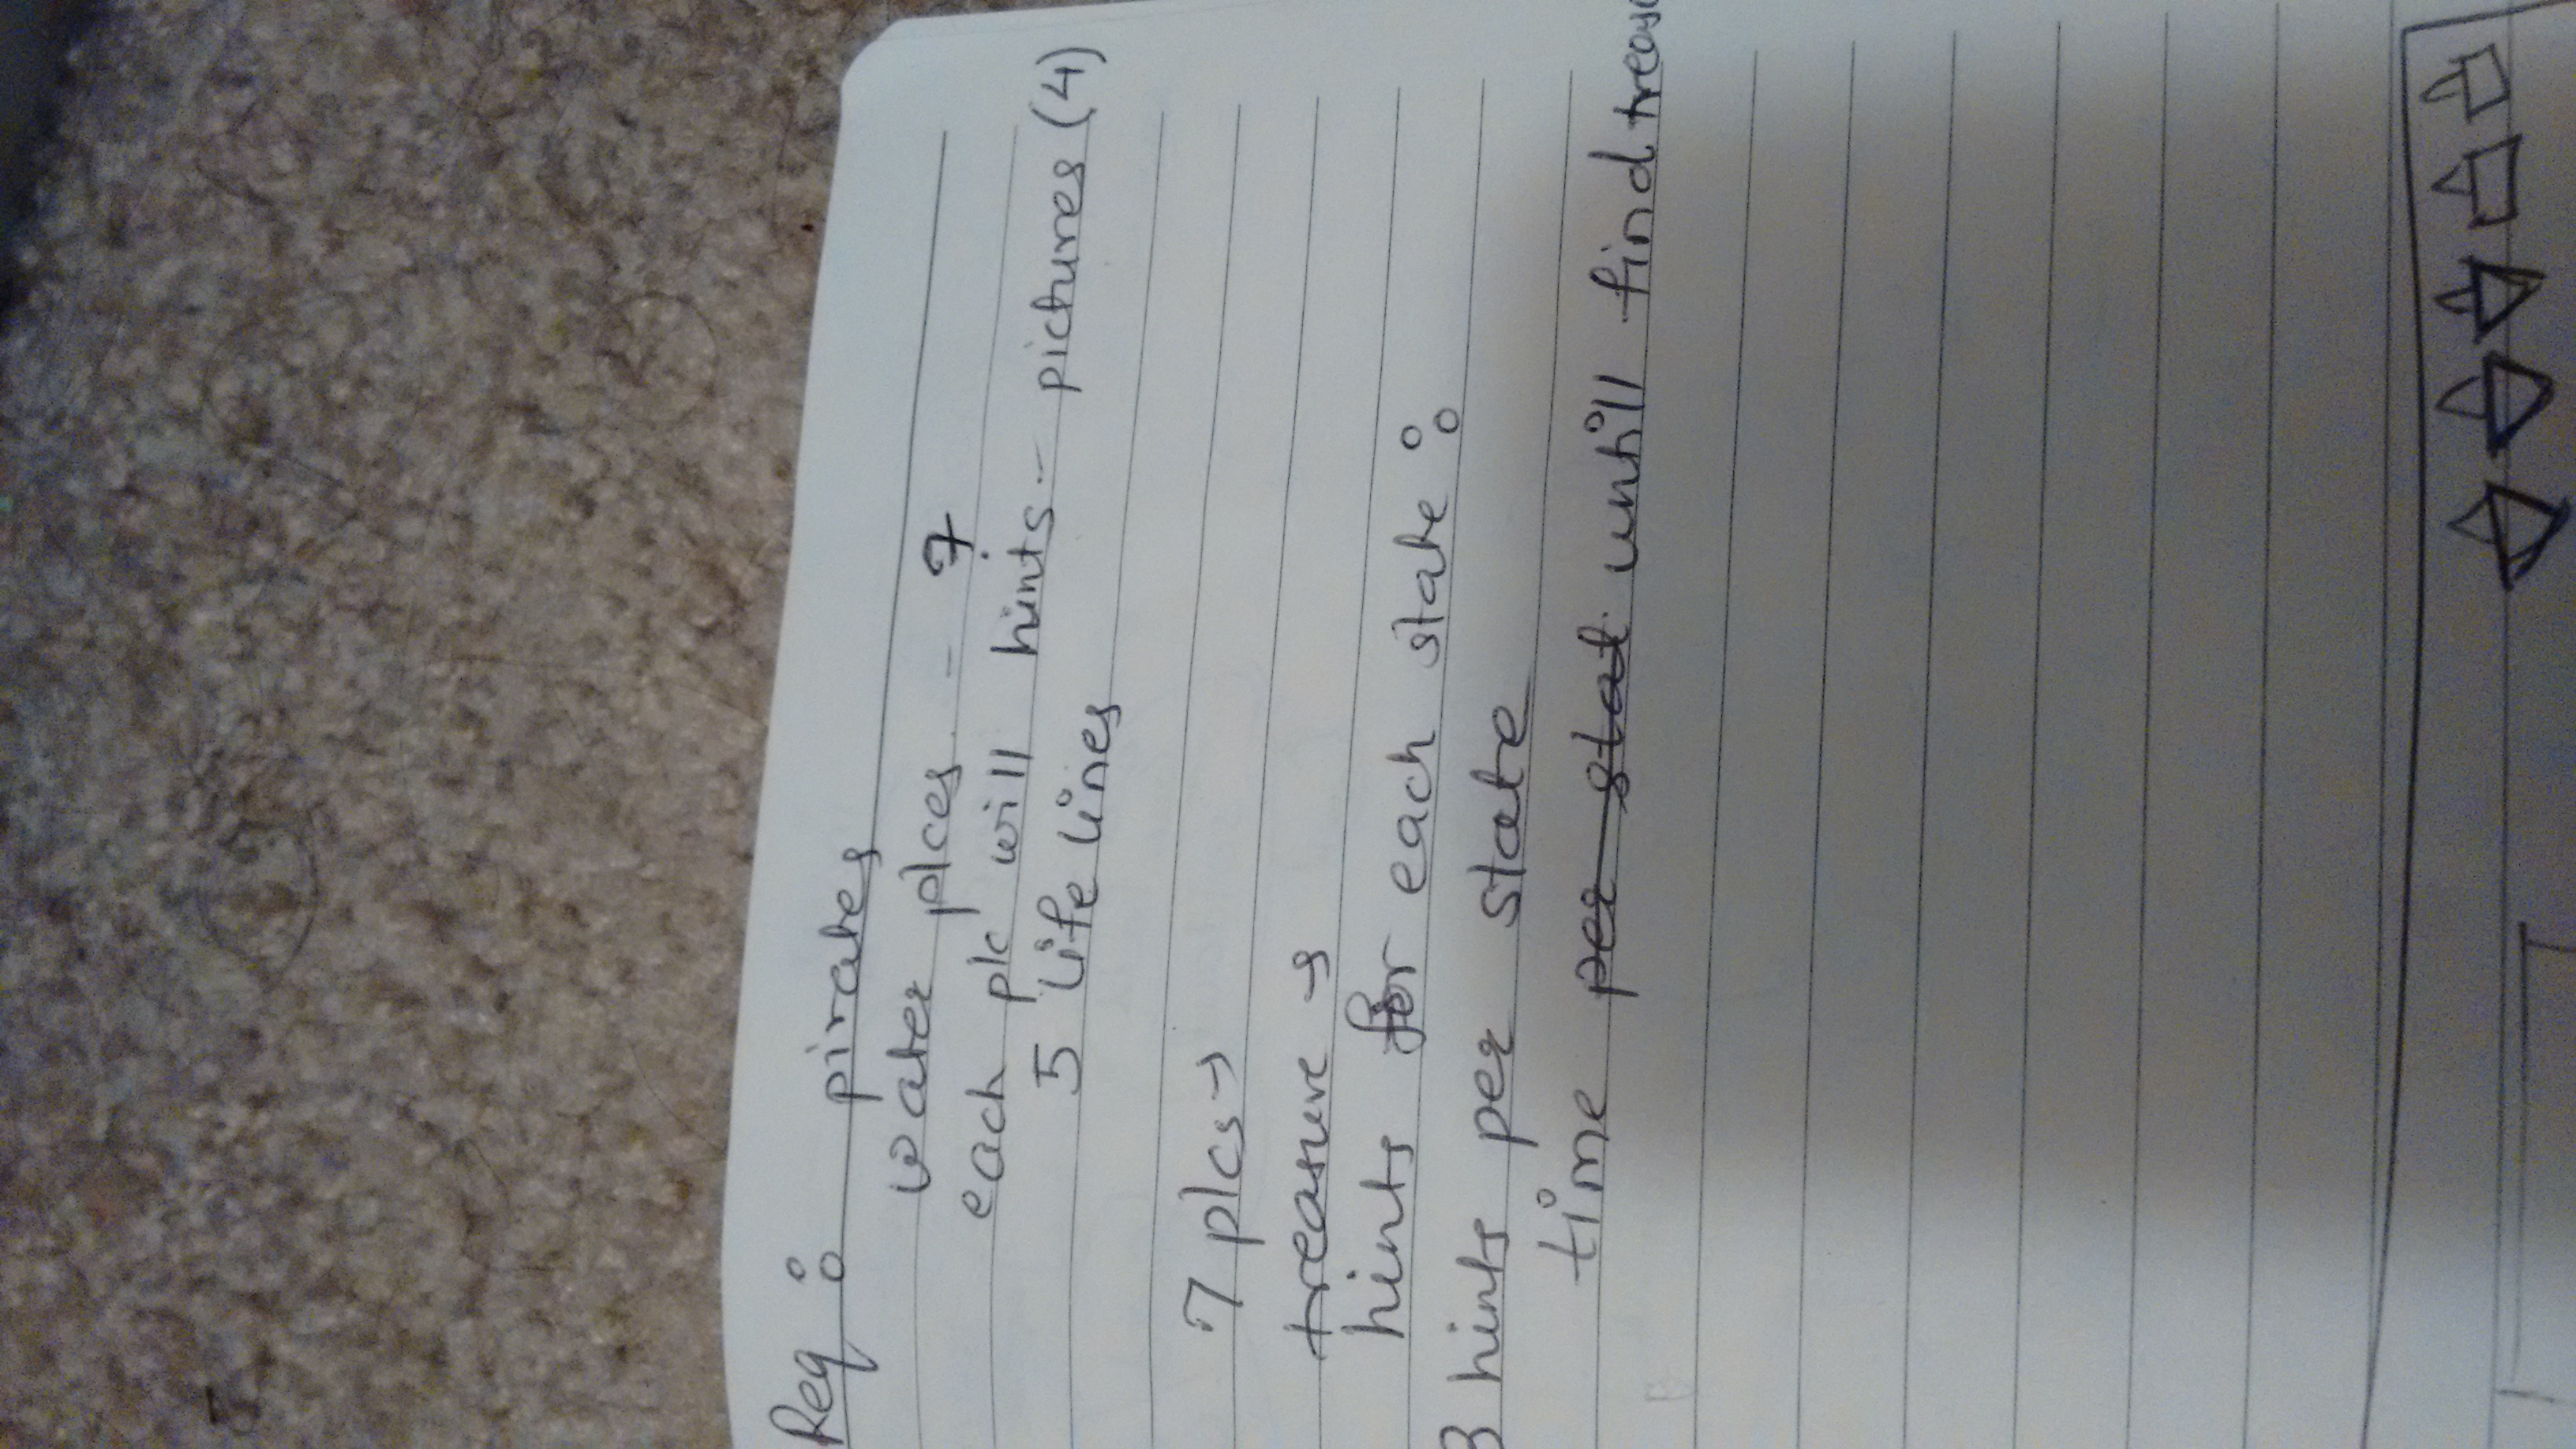 Req : pirates
water places - 7
each plc will hints - pictures (4)
5 life lines
7 plcs →
treasure →
hints for each state :
3 hints per state
time per stat untill find treasu